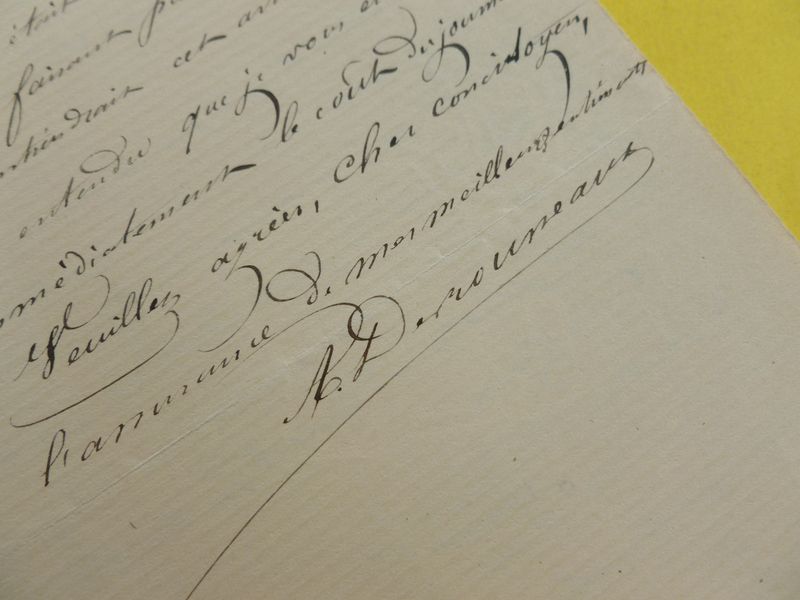 était
faisant
cet
entendu que je vous en
médiatement le coût du journal
Veuillez agréer, cher concitoyen,
l'assurance de mes meilleurs sentiments
A. Derouneaux